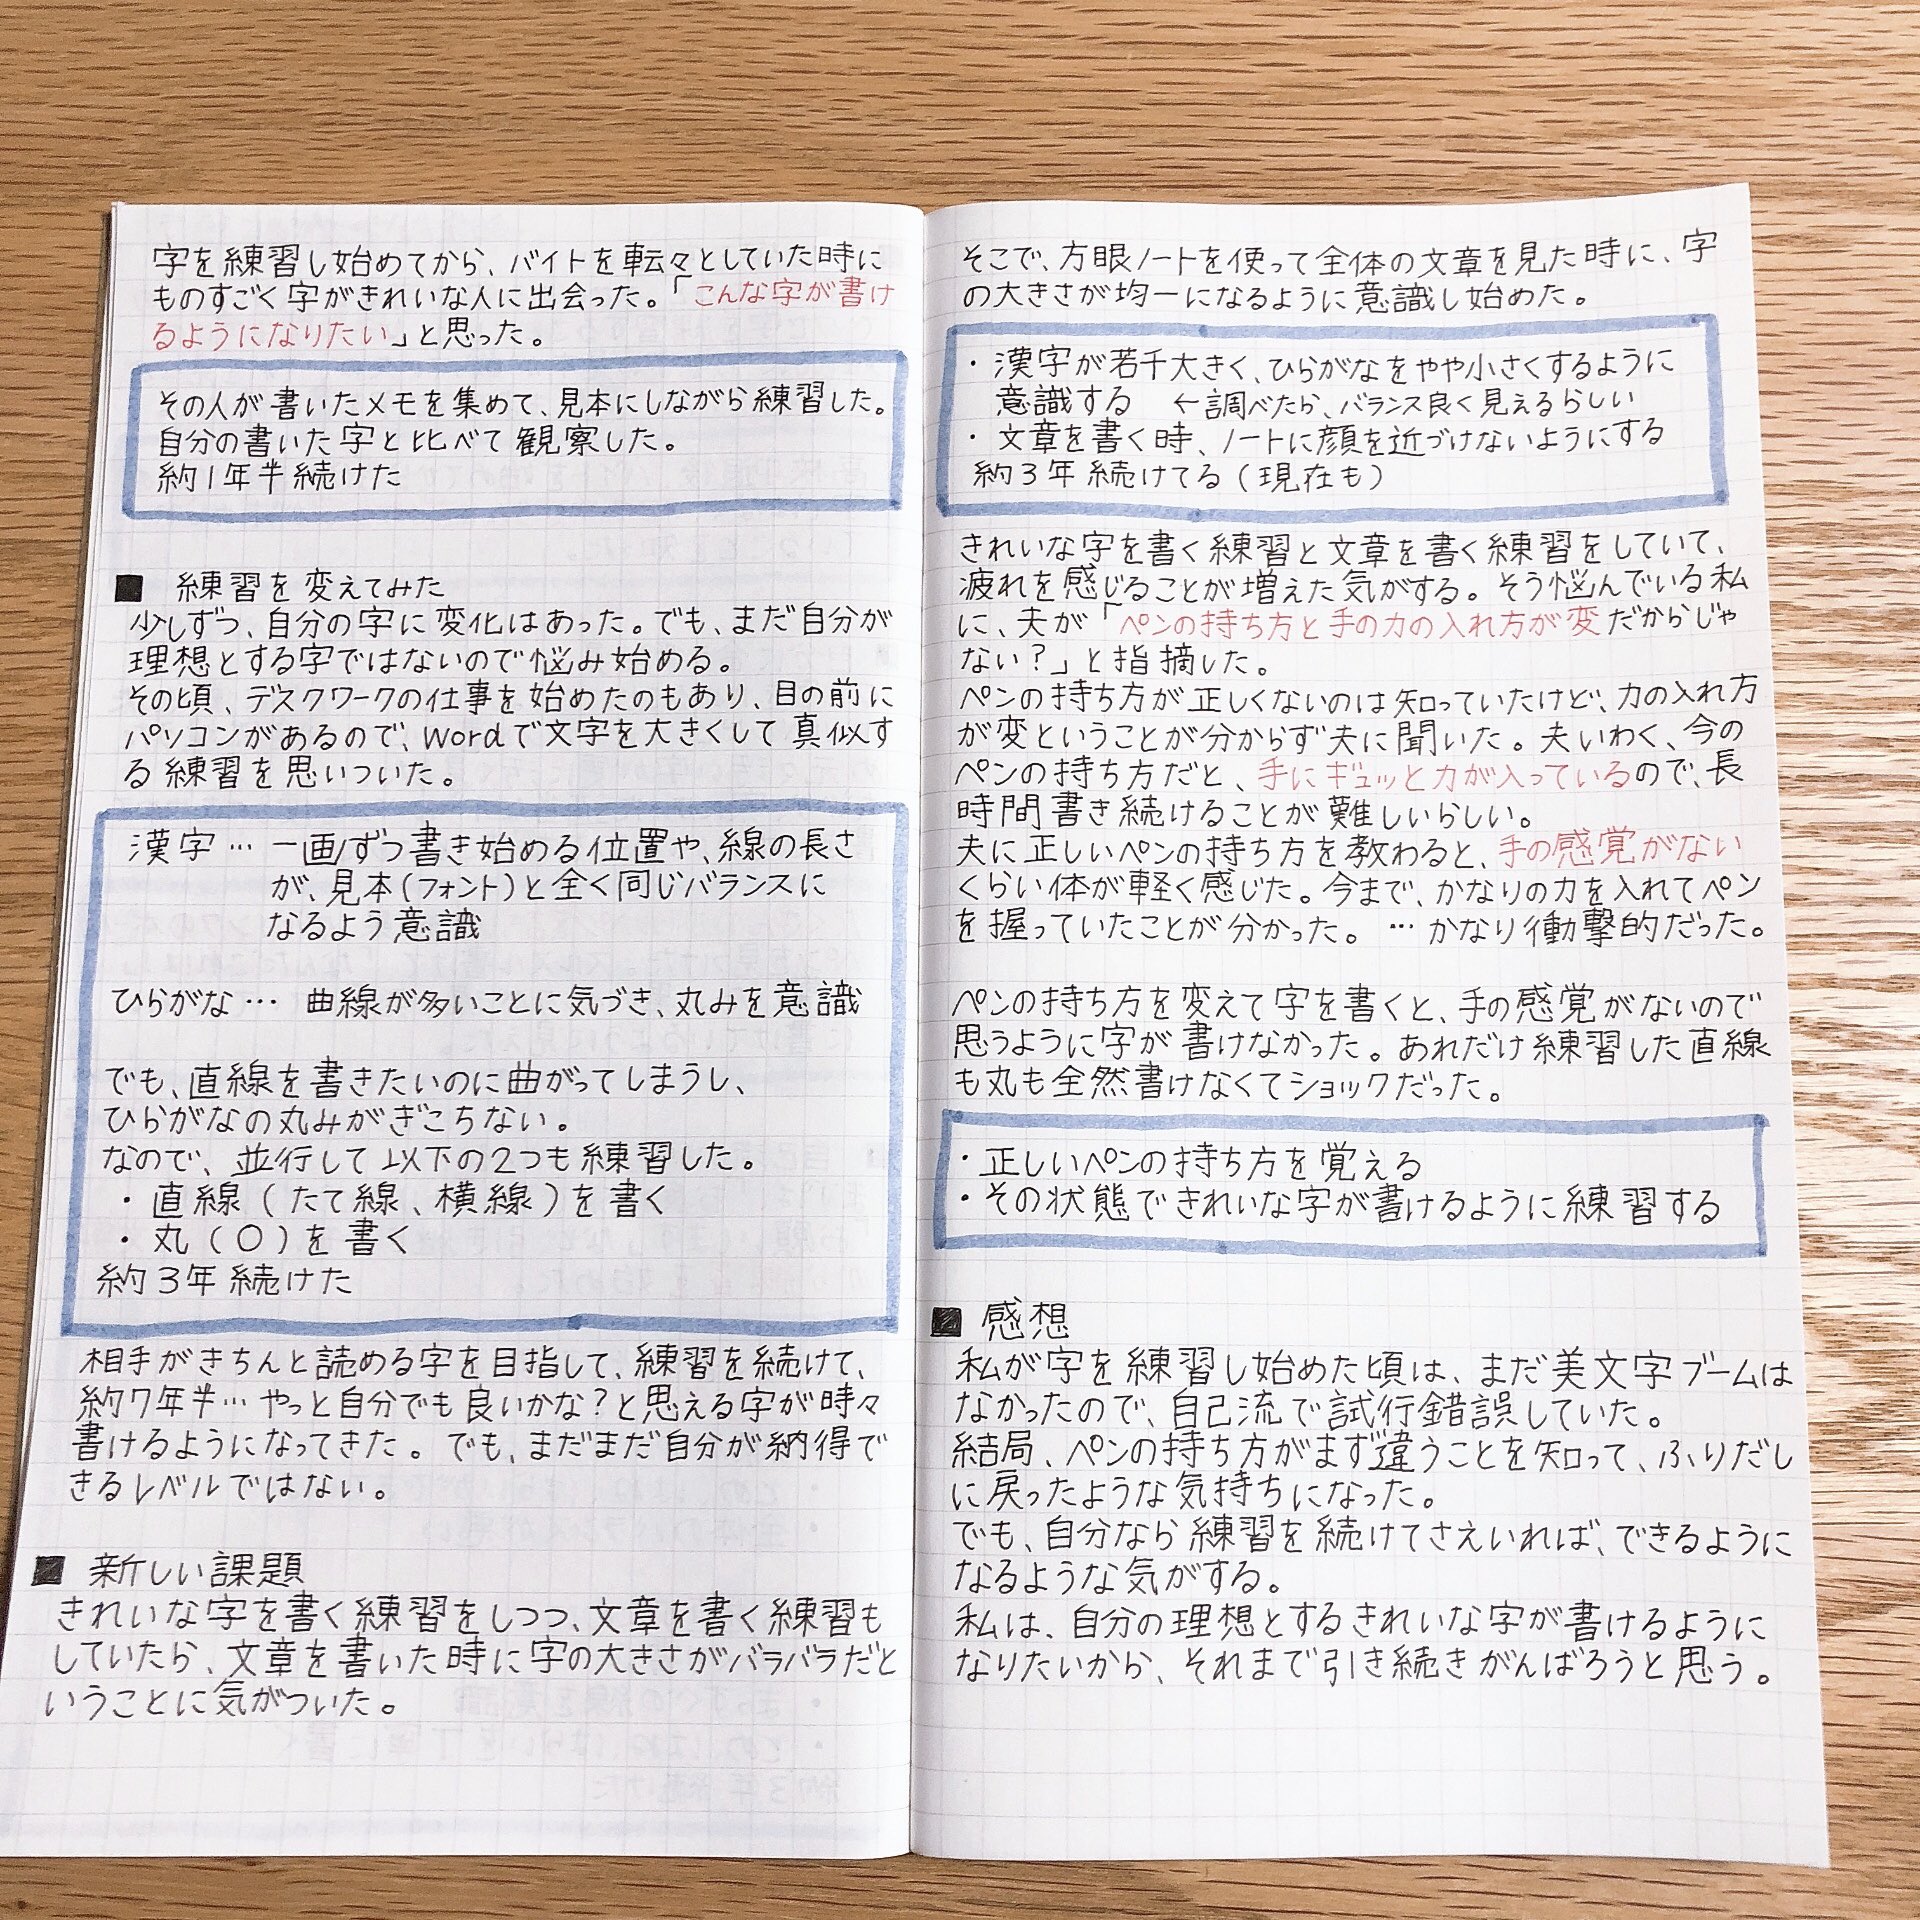 字を練習し始めてから、バイトを転々としていた時に
ものすごく字がきれいな人に出会った。「こんな字が書け
るようになりたい」と思った。
その人が書いたメモを集めて、見本にしながら練習した。
自分の書いた字と比べて観察した。
約1年半続けた
■ 練習を変えてみた
少しずつ、自分の字に変化はあった。でも、まだ自分が
理想とする字ではないので悩み始める。
その頃、デスクワークの仕事を始めたのもあり、目の前に
パソコンがあるので、Wordで文字を大きくして真似す
る練習を思いついた。
漢字… 一画ずつ書き始める位置や、線の長さ
が、見本(フォント)と全く同じバランスに
なるよう意識
ひらがな… 曲線が多いことに気づき、丸みを意識
でも、直線を書きたいのに曲がってしまうし、
ひらがなの丸みがぎこちない。
なので、並行して以下の2つも練習した。
・直線(たて線、横線)を書く
・丸(〇)を書く
約3年続けた
相手がきちんと読める字を目指して、練習を続けて、
約7年半…やっと自分でも良いかな?と思える字が時々
書けるようになってきた。でも、まだまだ自分が納得で
きるレベルではない。
■ 新しい課題
きれいな字を書く練習をしつつ、文章を書く練習も
していたら、文章を書いた時に字の大きさがバラバラだと
いうことに気がついた。
そこで、方眼ノートを使って全体の文章を見た時に、字
の大きさが均一になるように意識し始めた。
・漢字が若干大きく、ひらがなをやや小さくするように
意識する ←調べたら、バランス良く見えるらしい
・文章を書く時、ノートに顔を近づけないようにする
約3年続けてる(現在も)
きれいな字を書く練習と文章を書く練習をしていて、
疲れを感じることが増えた気がする。そう悩んでいる私
に、夫が「ペンの持ち方と手の力の入れ方が変だからじゃ
ない?」と指摘した。
ペンの持ち方が正しくないのは知っていたけど、力の入れ方
が変ということが分からず夫に聞いた。夫いわく、今の
ペンの持ち方だと、手にギュッと力が入っているので、長
時間書き続けることが難しいらしい。
夫に正しいペンの持ち方を教わると、手の感覚がない
くらい体が軽く感じた。今まで、かなりの力を入れてペン
を握っていたことが分かった。…かなり衝撃的だった。
ペンの持ち方を変えて字を書くと、手の感覚がないので
思うように字が書けなかった。あれだけ練習した直線
も丸も全然書けなくてショックだった。
・正しいペンの持ち方を覚える
・その状態できれいな字が書けるように練習する
■ 感想
私が字を練習し始めた頃は、まだ美文字ブームは
なかったので、自己流で試行錯誤していた。
結局、ペンの持ち方がまず違うことを知って、ふりだし
に戻ったような気持ちになった。
でも、自分なら練習を続けてさえいれば、できるように
なるような気がする。
私は、自分の理想とするきれいな字が書けるように
なりたいから、それまで引き続きがんばろうと思う。